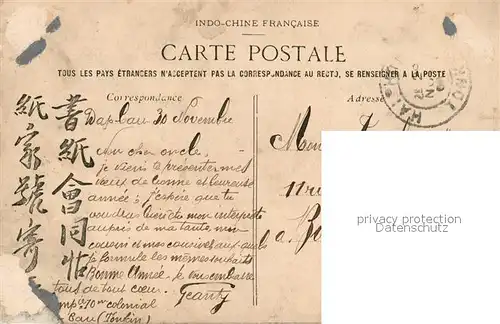 INDO-CHINE FRANÇAISE
CARTE POSTALE
TOUS LES PAYS ÉTRANGERS N'ACCEPTENT PAS LA CORRESPONDANCE AU RECTO, SE RENSEIGNER A LA POSTE
Correspondance
Adresse
Dap-Cau 30 Novembre
Mon cher oncle,
je viens te présenter mes
vœux de bonne et heureuse
année; j'espère que tu
voudras bien être mon interprète
auprès de ma tante, mon
cousin et mes cousines auxquels
je formule les mêmes souhaits
Bonne Année. Je vous embrasse
tous de tout cœur.
colonial
Cau (Tonkin)
書紙會同
紙家號寄
privacy protection